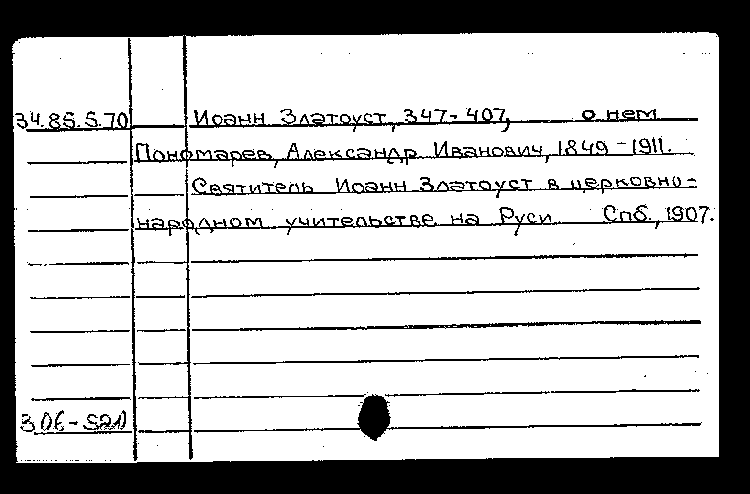 34.85.5.70 Иоанн Златоуст, 347-407, о нем
Пономарев, Александр Иванович, 1849-1911.
Святитель Иоанн Златоуст в церковно-
народном учительстве на Руси Спб., 1907.
306-S20